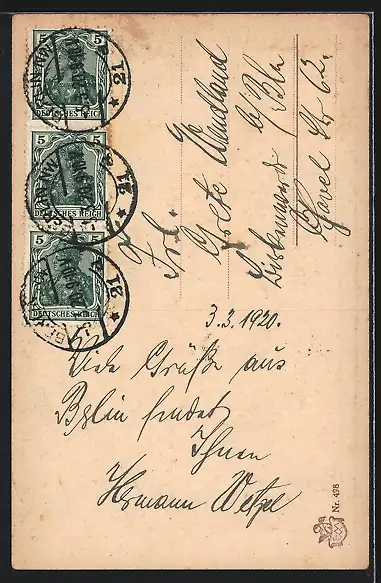 5
DEUTSCHES REICH
5 5
DEUTSCHES REICH
5 5
DEUTSCHES REICH
21
21
21
Frl.
Grete Wendland
b/Bln
Havel Str 62.
3.3.1920.
Viele Grüße aus
Berlin sendet
Ihnen
Hermann Wetzel
Nr. 498